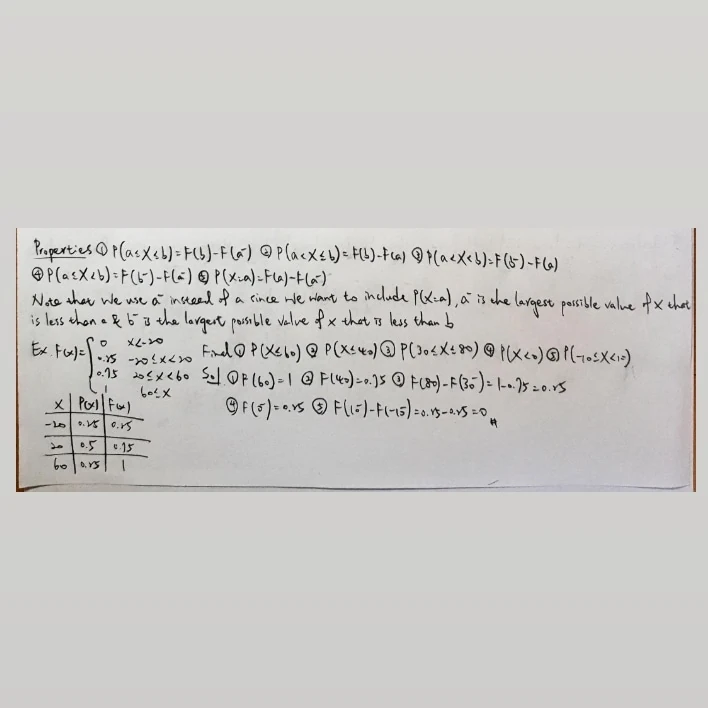 Properties ① P(a≤X≤b)=F(b)-F(a⁻) ② P(a<X≤b)=F(b)-F(a) ③ P(a<X<b)=F(b⁻)-F(a)
④ P(a≤X<b)=F(b⁻)-F(a⁻) ⑤ P(X=a)=F(a)-F(a⁻)
Note that we use a⁻ instead of a since we want to include P(X=a), a⁻ is the largest possible value of X that
is less than a & b⁻ is the largest possible value of X that is less than b
Ex. F(x)={ 0 x<-20
0.25 -20≤x<20 Find ① P(X≤60) ② P(X≤40) ③ P(30≤X≤80) ④ P(X<0) ⑤ P(-10≤X<10)
0.75 20≤x<60 Sol ① F(60)=1 ② F(40)=0.75 ③ F(80)-F(30⁻)=1-0.75=0.25
1 60≤x
④ F(0⁻)=0.25 ⑤ F(10⁻)-F(-10⁻)=0.25-0.25=0 #
X P(x) F(x)
-20 0.25 0.25
20 0.5 0.75
60 0.25 1